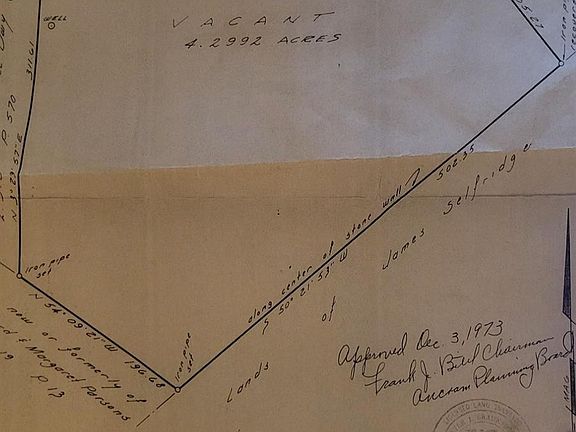 WELL
VACANT
4.2992 ACRES
311.61
P 570
N 3° 29' 57" E
iron pipe
set
N 54° 09' 21" W 196.68
now or formerly of
& Margaret Parsons
P 13
iron pipe
set
along center of stone wall
502.35
S 50° 21' 53" W
Lands of James Selfridge
iron pipe
Approved Dec. 3, 1973
Frank J. Chairman
Ancram Planning Board
MAG